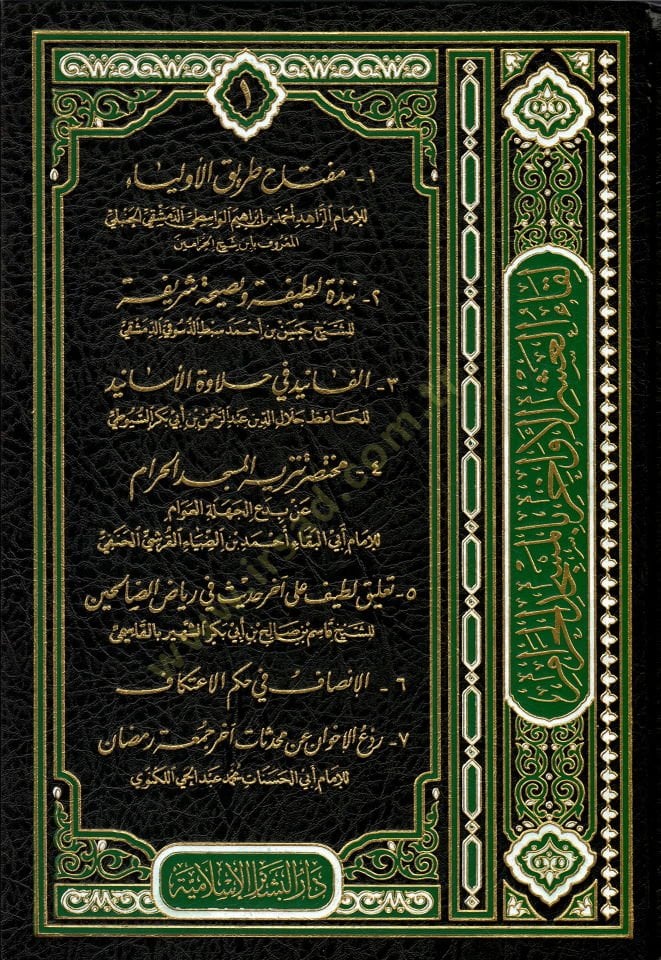 ١
١- مفتاح طريق الأولياء
للإمام الزاهد أحمد بن إبراهيم الواسطي الدمشقي الحنبلي
المعروف بابن شيخ الحزامين
٢- نبذة لطيفة ونصيحة شريفة
للشيخ حسن بن أحمد سبط الدسوقي الدمشقي
٣- الفانيد في حلاوة الأسانيد
للحافظ جلال الدين عبد الرحمن بن أبي بكر السيوطي
٤- مختصر تنزيه المسجد الحرام
عن بدع الجهلة العوام
للإمام أبي البقاء أحمد بن الضياء القرشي الحنفي
٥- تعليق لطيف على آخر حديث في رياض الصالحين
للشيخ قاسم بن صالح بن أبي بكر الشهير بالقاسمي
٦- الإنصاف في حكم الاعتكاف
٧- ردع الإخوان عن محدثات آخر جمعة رمضان
للإمام أبي الحسنات محمد عبد الحي اللكنوي
دار البشائر الإسلامية
لقاء العشر الأواخر بالمسجد الحرام
www.irsad.com.tr